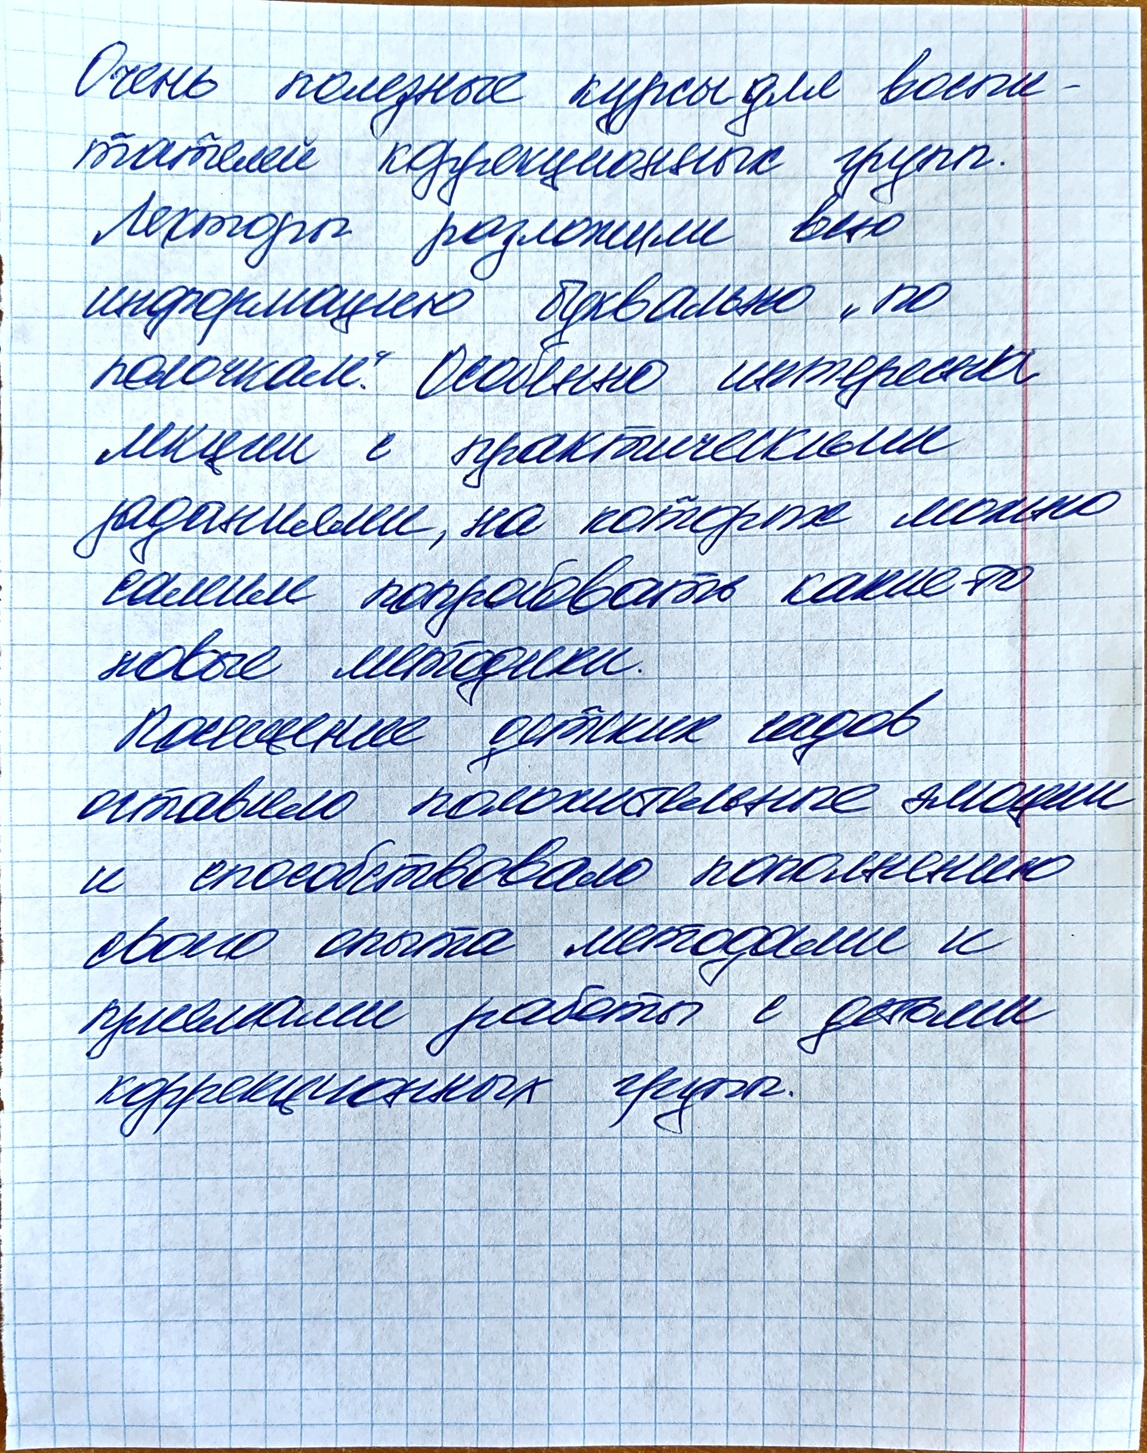 Очень полезные курсы для воспи-
тателей коррекционных групп.
Лекторы разложили всю
информацию буквально „по
полочкам“. Особенно интересна
лекции с практическими
заданиями, на которых можно
самим попробовать какие-то
новые методики.
Посещение детских садов
оставило положительные эмоции
и способствовало пополнению
своего опыта методами и
приемами работы с детьми
коррекционных групп.